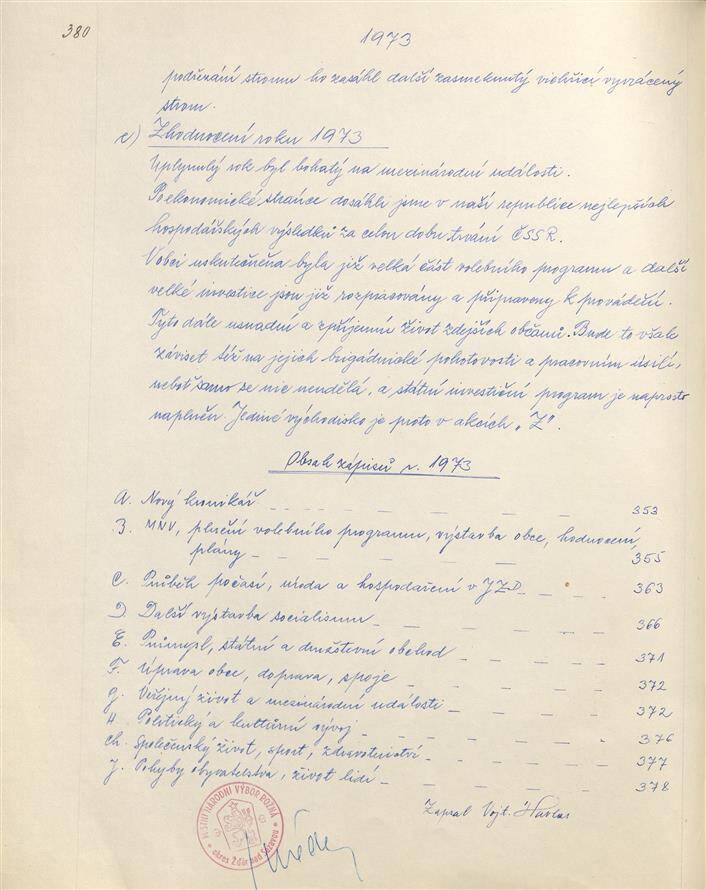 380
1973
podřezání stromu ho zasáhl další zasmeknutý vichřicí vyvrácený
strom.
c) Zhodnocení roku 1973
Uplynulý rok byl bohatý na mezinárodní události.
Po ekonomické stránce dosáhli jsme v naší republice nejlepších
hospodářských výsledků za celou dobu trvání ČSSR.
V obci uskutečněna byla již velká část volebního programu a další
velké investice jsou již rozpracovány a připraveny k provádění.
Tyto dále usnadní a zpříjemní život zdejších občanů. Bude to však
záviset též na jejich brigádnické pohotovosti a pracovním úsilí,
neboť samo se nic neudělá, a státní investiční program je naprosto
naplněn. Jediné východisko je proto v akcích „Z".
Obsah zápisů r. 1973
A. Nový kronikář 353
B. MNV, plnění volebního programu, výstavba obce, hodnocení
plány 355
C. Průběh počasí, úroda a hospodaření v JZD 363
D. Další výstavba socialismu 366
E. Průmysl, státní a družstevní obchod 371
F. Úprava obce, doprava, spoje 372
G. Veřejný život a mezinárodní události 372
H. Politický a kulturní vývoj 376
Ch. Společenský život, sport, zdravotnictví 377
J. Pohyby obyvatelstva, život lidí 378
Zapsal Vojt. Havlas
MÍSTNÍ NÁRODNÍ VÝBOR ROŽNÁ
okres Žďár nad Sázavou